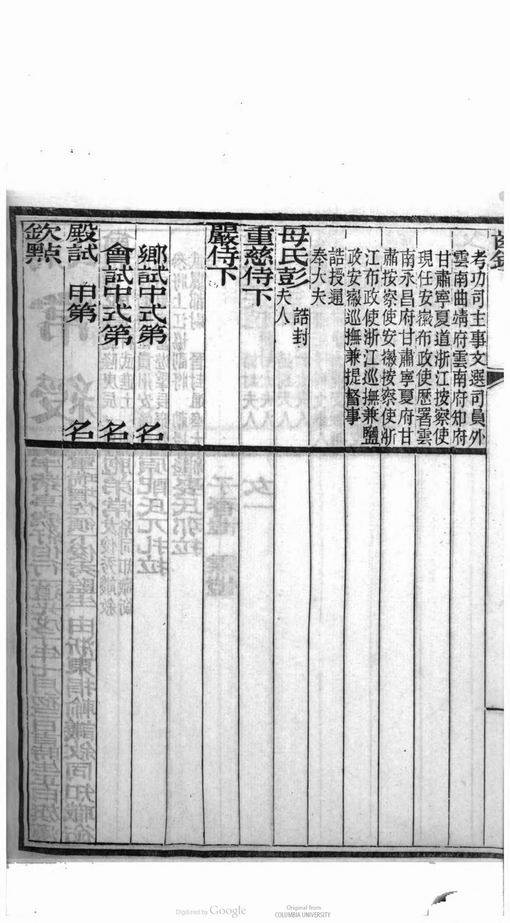 考功司主事文選司員外
雲南曲靖府雲南府知府
甘肅寧夏道浙江按察使
現任安徽布政使歷署雲
南永昌府甘肅寧夏府甘
肅按察使安徽按察使浙
江布政使浙江巡撫兼鹽
政安徽巡撫兼提督事
誥授通
奉大夫
母氏彭 誥封
夫人
重慈侍下
嚴侍下
鄉試中式第 名
會試中式第 名
殿試 甲第 名
欽點
Digitized by Google
Original from
COLUMBIA UNIVERSITY